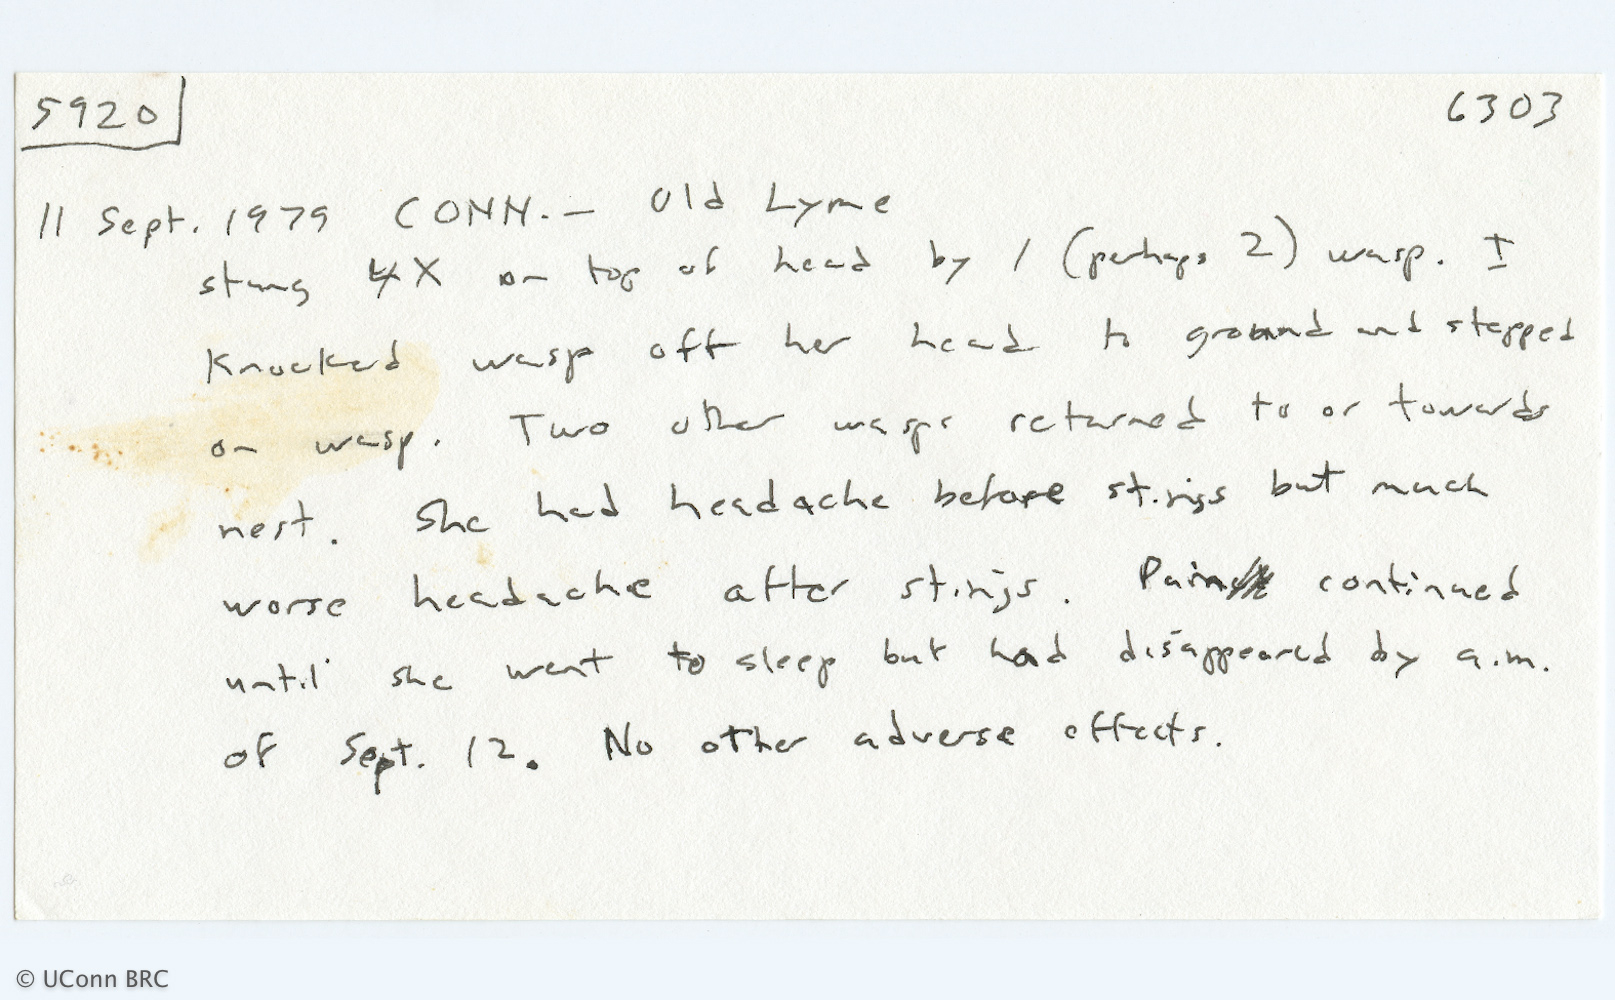 5920 6303
11 Sept. 1979 CONN. — Old Lyme
stung 4X on top of head by 1 (perhaps 2) wasp. I
knocked wasp off her head to ground and stepped
on wasp. Two other wasps returned to or towards
nest. She had headache before stings but much
worse headache after stings. Pain continued
until she went to sleep but had disappeared by a.m.
of Sept. 12. No other adverse effects.
© UConn BRC